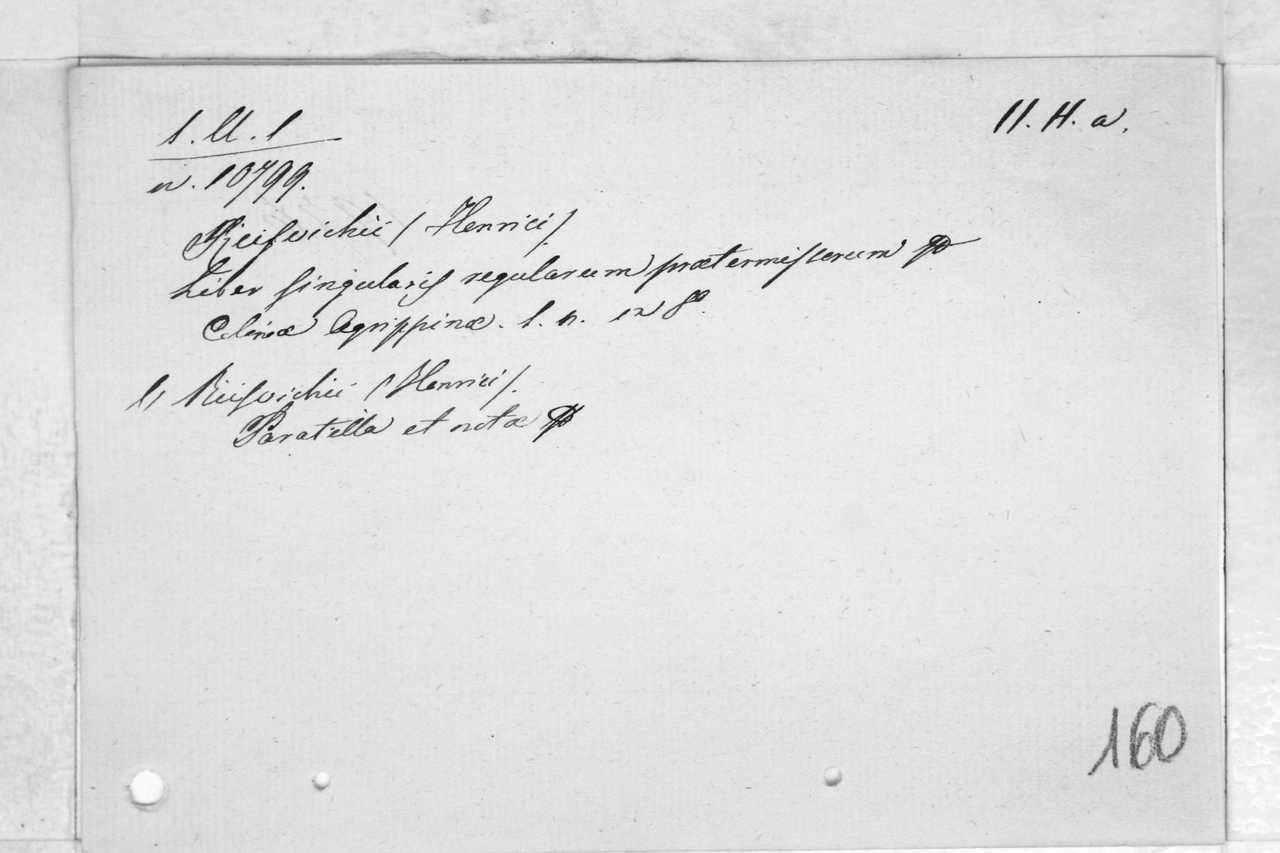 1. U. 1
II. H. a.
n. 10799.
Rieiswichii (Henrici).
Liber singularis regularum prætermissorum
Coloniæ Agrippinæ. s. n. in 8º.
1, Rieiswichii (Henrici).
Paratilla et notæ
160